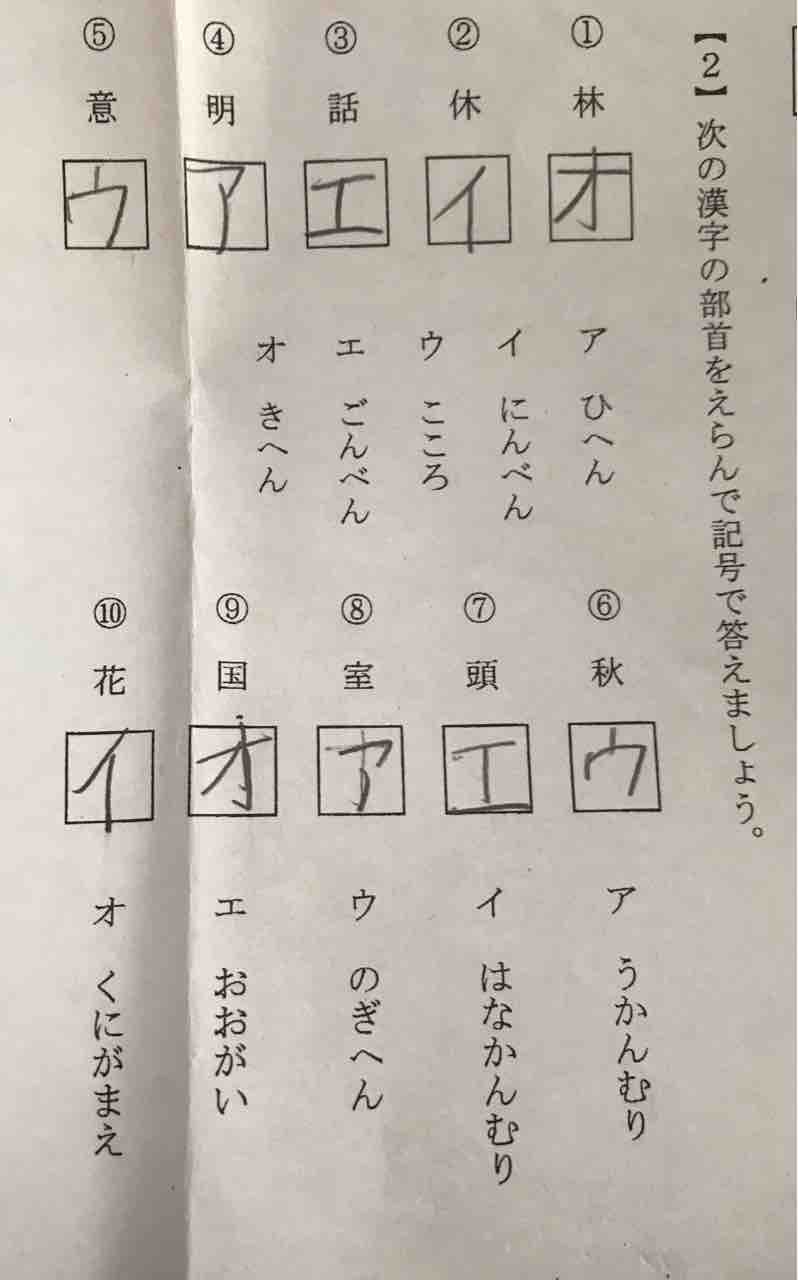 【2】次の漢字の部首をえらんで記号で答えましょう。
① 林 オ
② 休 イ
③ 話 エ
④ 明 ア
⑤ 意 ウ
ア ひへん
イ にんべん
ウ こころ
エ ごんべん
オ きへん
⑥ 秋 ウ
⑦ 頭 エ
⑧ 室 ア
⑨ 国 オ
⑩ 花 イ
ア うかんむり
イ はなかんむり
ウ のぎへん
エ おおがい
オ くにがまえ